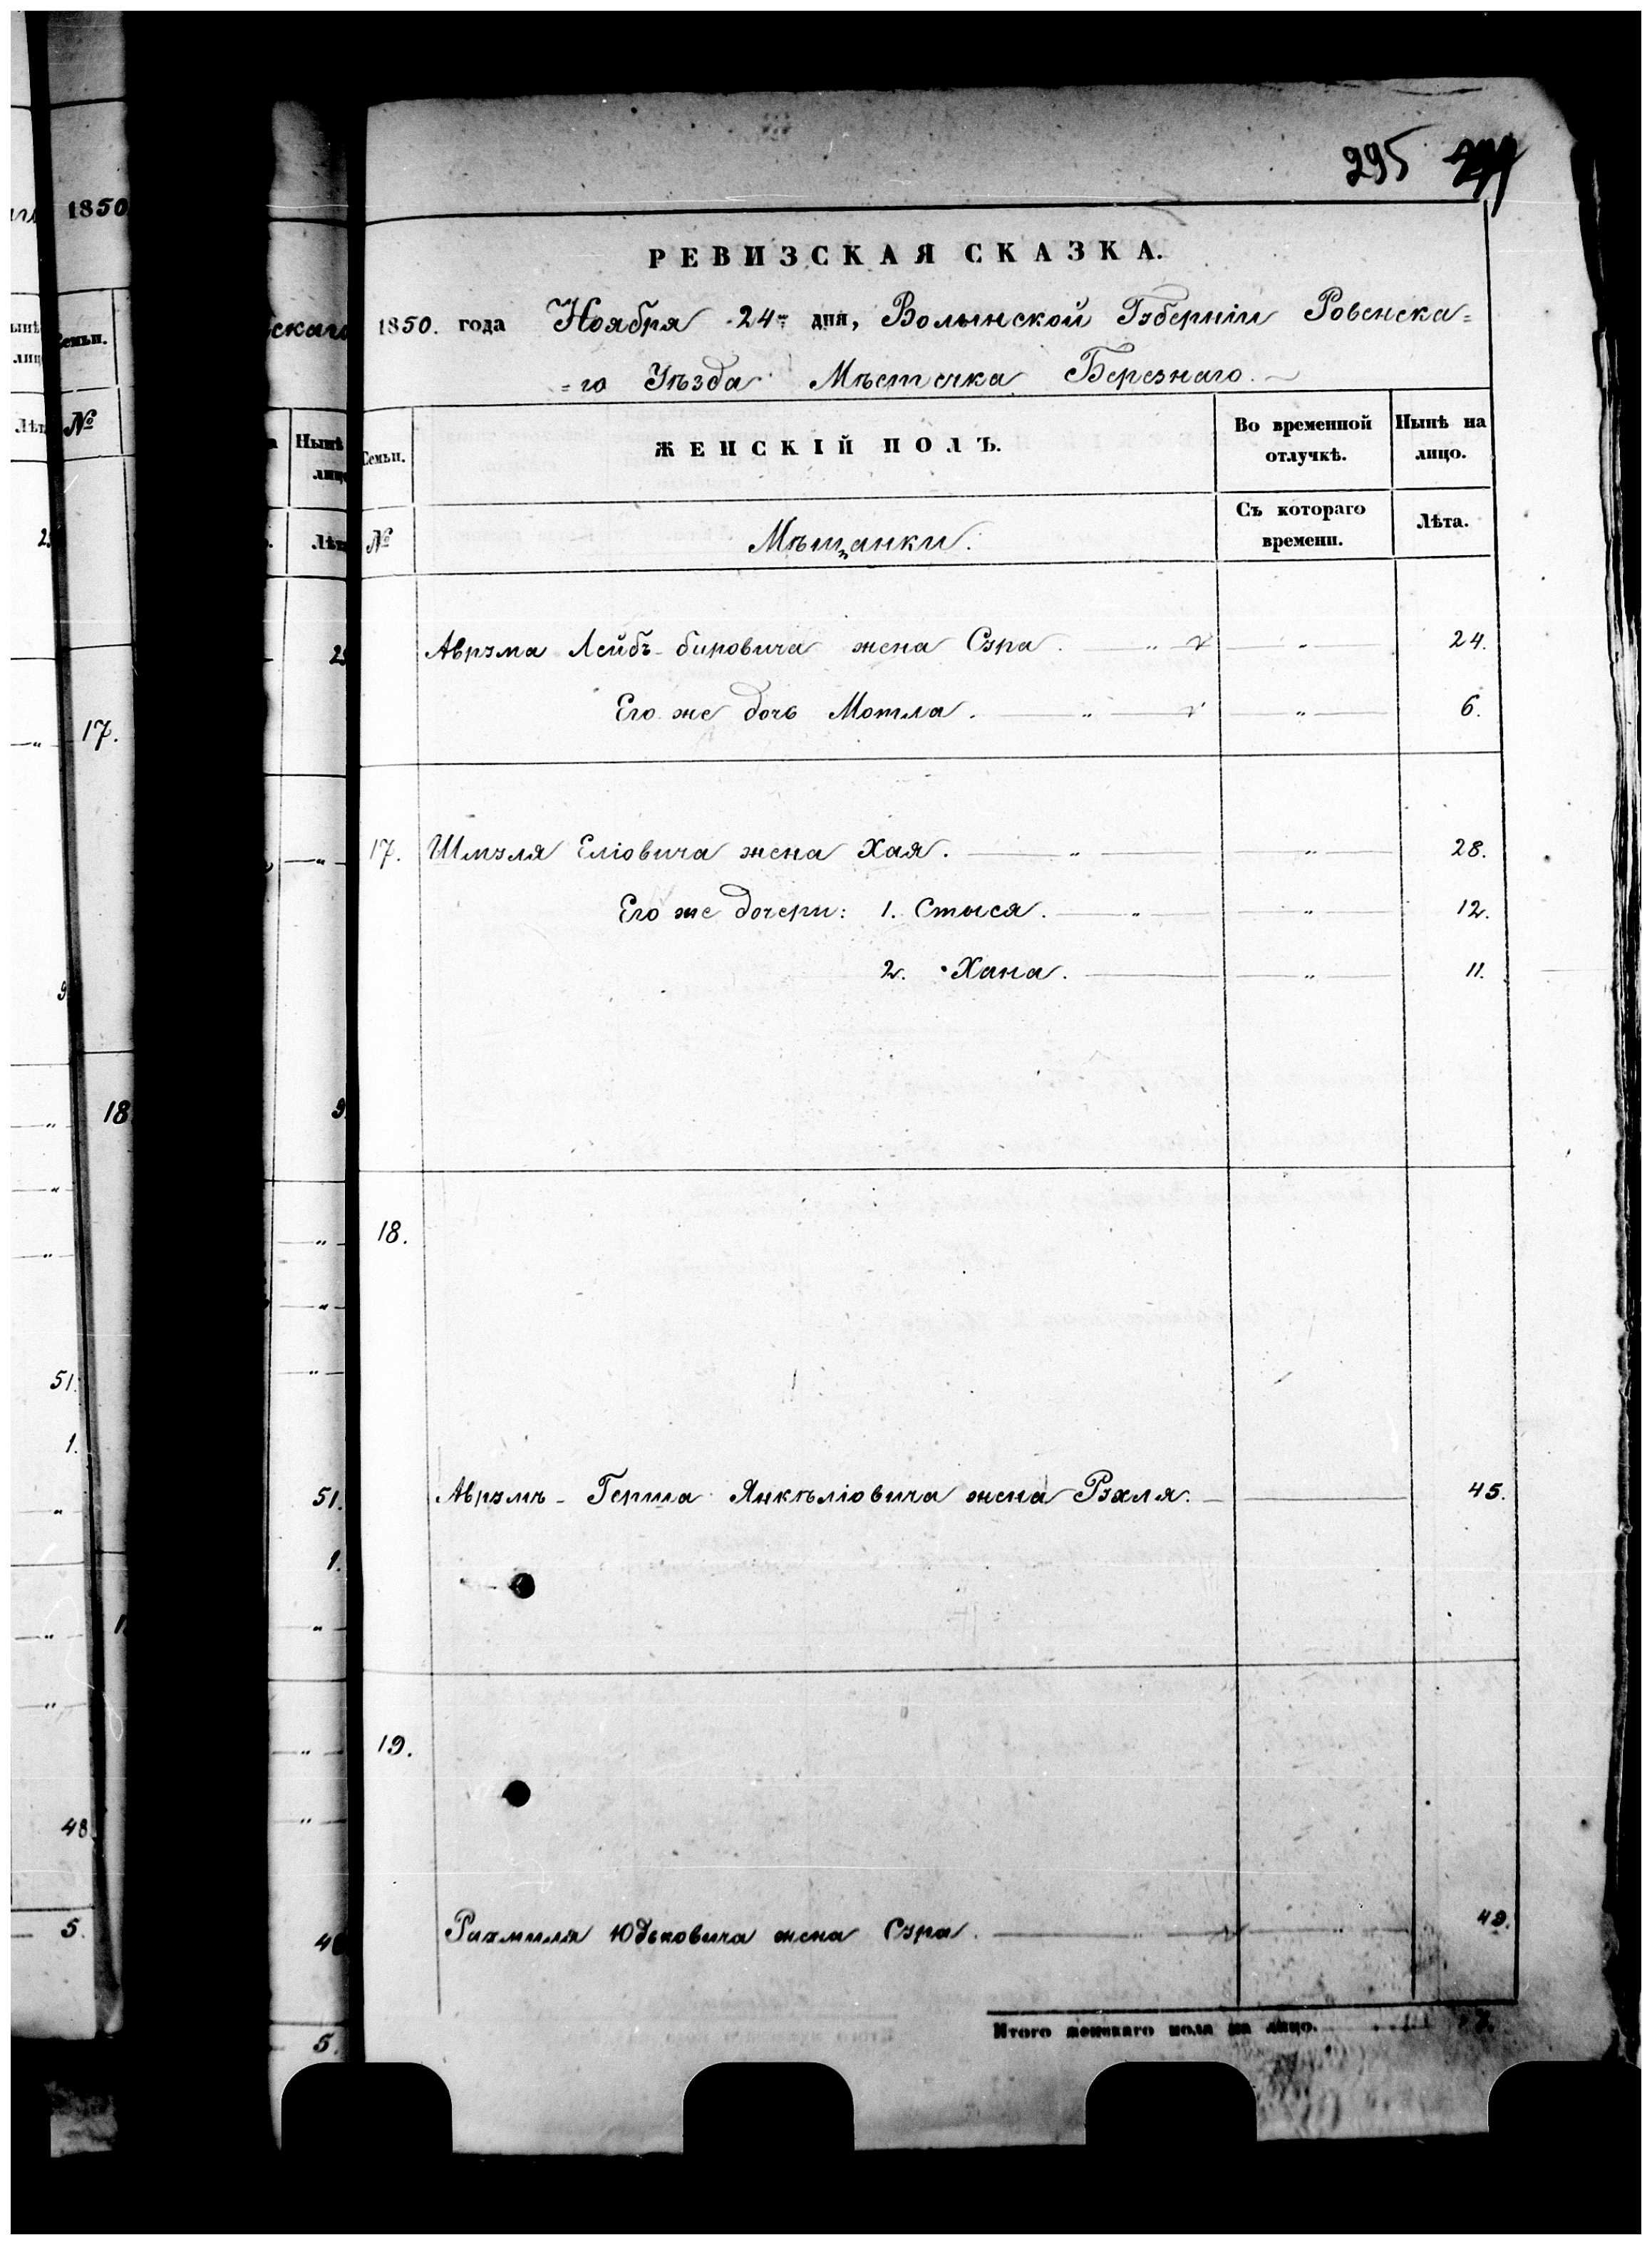 295
РЕВИЗСКАЯ СКАЗКА.
1850. года Ноября 24го дня, Волынской Губерніи Ровенска=
=го Уѣзда Мѣстечка Березнаго.
Семьи.
ЖЕНСКІЙ ПОЛЪ.
Во временной отлучкѣ.
Нынѣ на лицо.
№
Мѣщанки.
Съ котораго времени.
Лѣта.
Аврума Лейбъ-бировича жена Сура. " " 24.
Его же дочь Мотля. " " 6.
17. Шмуля Еліовича жена Хая. " " 28.
Его же дочери: 1. Стыся. " " 12.
2. Хана. " 11.
18.
Аврумъ-Герша Янкѣліовича жена Рухля. 45.
19.
Рахмиля Юдковича жена Сура. " " 49.
Итого женскаго пола на лицо. 7.
1850
Семьи.
№
17.
18
51.
1.
48
5.
скаго
Нынѣ
51.
1.
5.